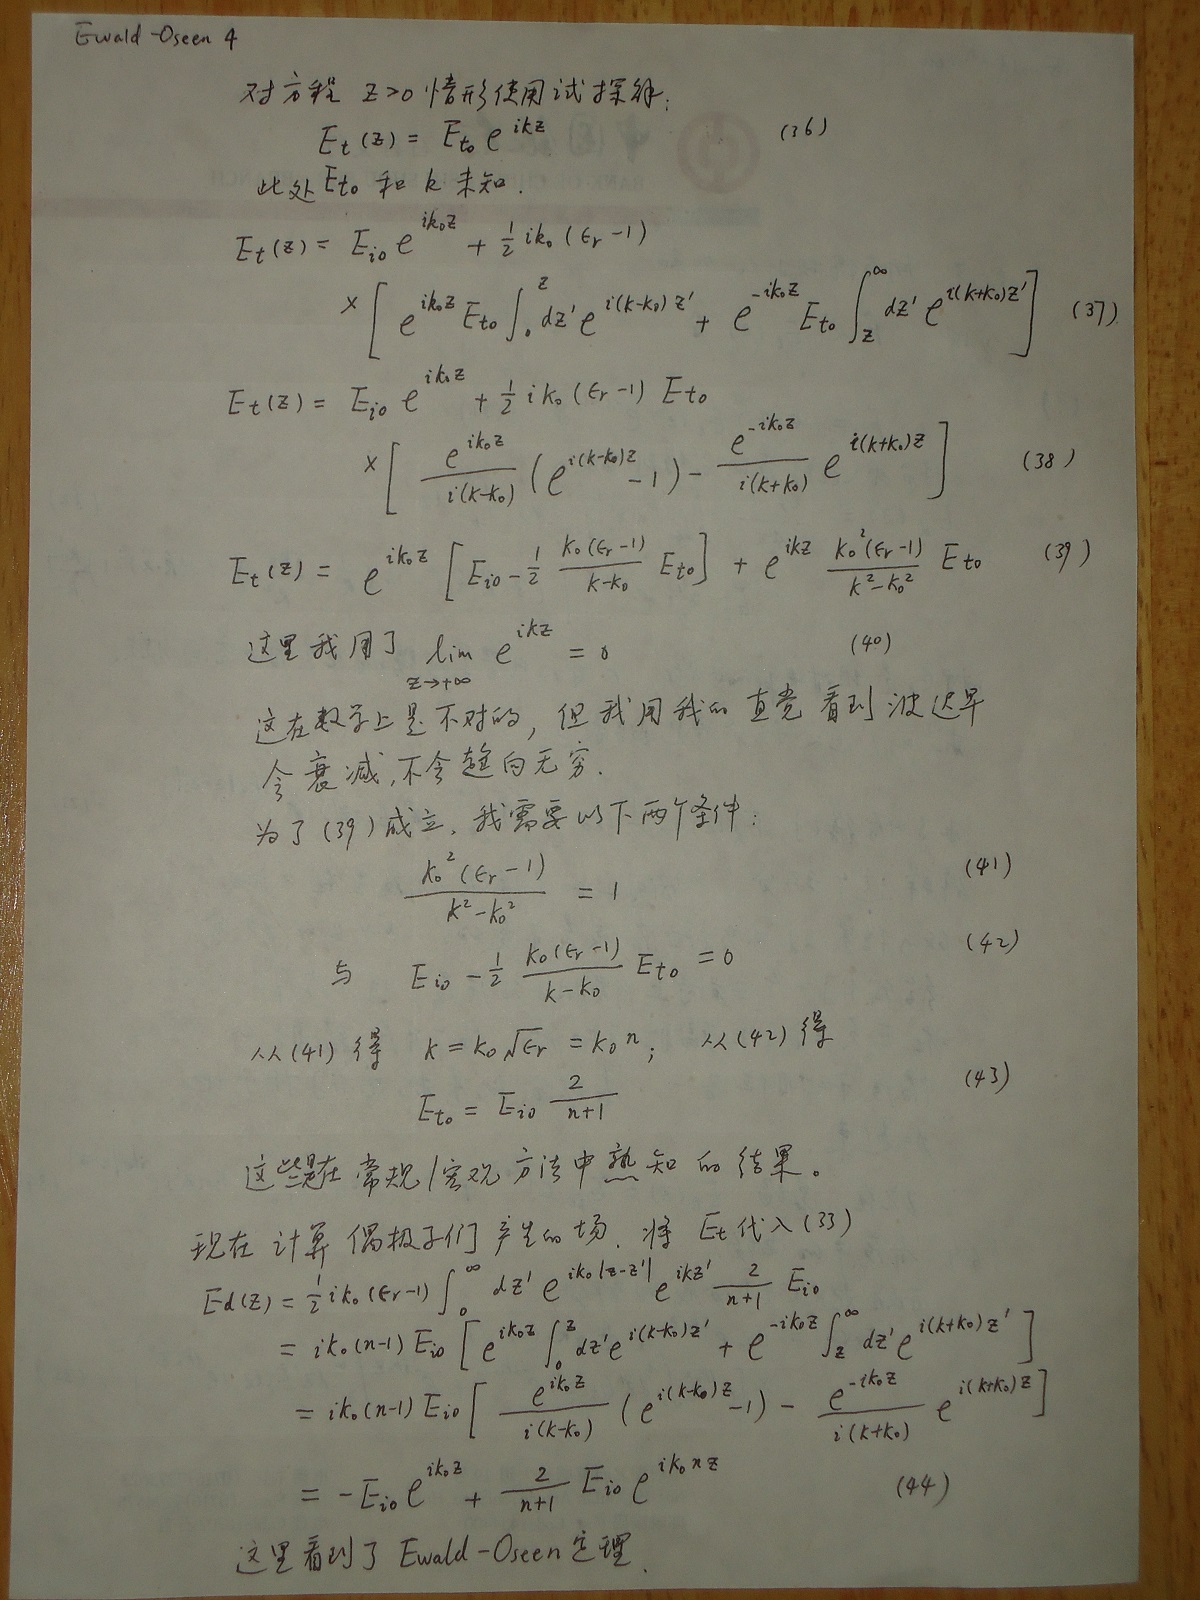 Ewald-Oseen 4
对方程 z>0 情形使用试探解:
E_t(z) = E_{t0} e^{ikz} (36)
此处 E_{t0} 和 k 未知.
E_t(z) = E_{i0} e^{ik_0z} + \frac{1}{2} ik_0 (ϵ_r -1)
× [ e^{ik_0z} E_{t0} ∫_0^z dz' e^{i(k-k_0)z'} + e^{-ik_0z} E_{t0} ∫_z^∞ dz' e^{i(k+k_0)z'} ] (37)
E_t(z) = E_{i0} e^{ik_0z} + \frac{1}{2} ik_0 (ϵ_r -1) E_{t0}
× [ \frac{e^{ik_0z}}{i(k-k_0)} (e^{i(k-k_0)z} -1) - \frac{e^{-ik_0z}}{i(k+k_0)} e^{i(k+k_0)z} ] (38)
E_t(z) = e^{ik_0z} [ E_{i0} - \frac{1}{2} \frac{k_0(ϵ_r-1)}{k-k_0} E_{t0} ] + e^{ikz} \frac{k_0^2(ϵ_r-1)}{k^2-k_0^2} E_{t0} (39)
这里我用了 \lim_{z→+∞} e^{ikz} = 0 (40)
这在数学上是不对的, 但我用我的直觉看到波迟早
会衰减, 不会趋向无穷.
为了(39)成立, 我需要以下两个条件:
\frac{k_0^2(ϵ_r-1)}{k^2-k_0^2} = 1 (41)
与 E_{i0} - \frac{1}{2} \frac{k_0(ϵ_r-1)}{k-k_0} E_{t0} = 0 (42)
从(41)得 k = k_0\sqrt{ϵ_r} = k_0 n; 从(42)得
E_{t0} = E_{i0} \frac{2}{n+1} (43)
这些是在常规/宏观方法中熟知的结果。
现在计算偶极子们产生的场. 将 E_t 代入(33)
E_d(z) = \frac{1}{2} ik_0(ϵ_r-1) ∫_0^∞ dz' e^{ik_0|z-z'|} e^{ikz'} \frac{2}{n+1} E_{i0}
= ik_0(n-1) E_{i0} [ e^{ik_0z} ∫_0^z dz' e^{i(k-k_0)z'} + e^{-ik_0z} ∫_z^∞ dz' e^{i(k+k_0)z'} ]
= ik_0(n-1) E_{i0} [ \frac{e^{ik_0z}}{i(k-k_0)} (e^{i(k-k_0)z} -1) - \frac{e^{-ik_0z}}{i(k+k_0)} e^{i(k+k_0)z} ]
= -E_{i0} e^{ik_0z} + \frac{2}{n+1} E_{i0} e^{ik_0nz} (44)
这里看到了 Ewald-Oseen 定理.